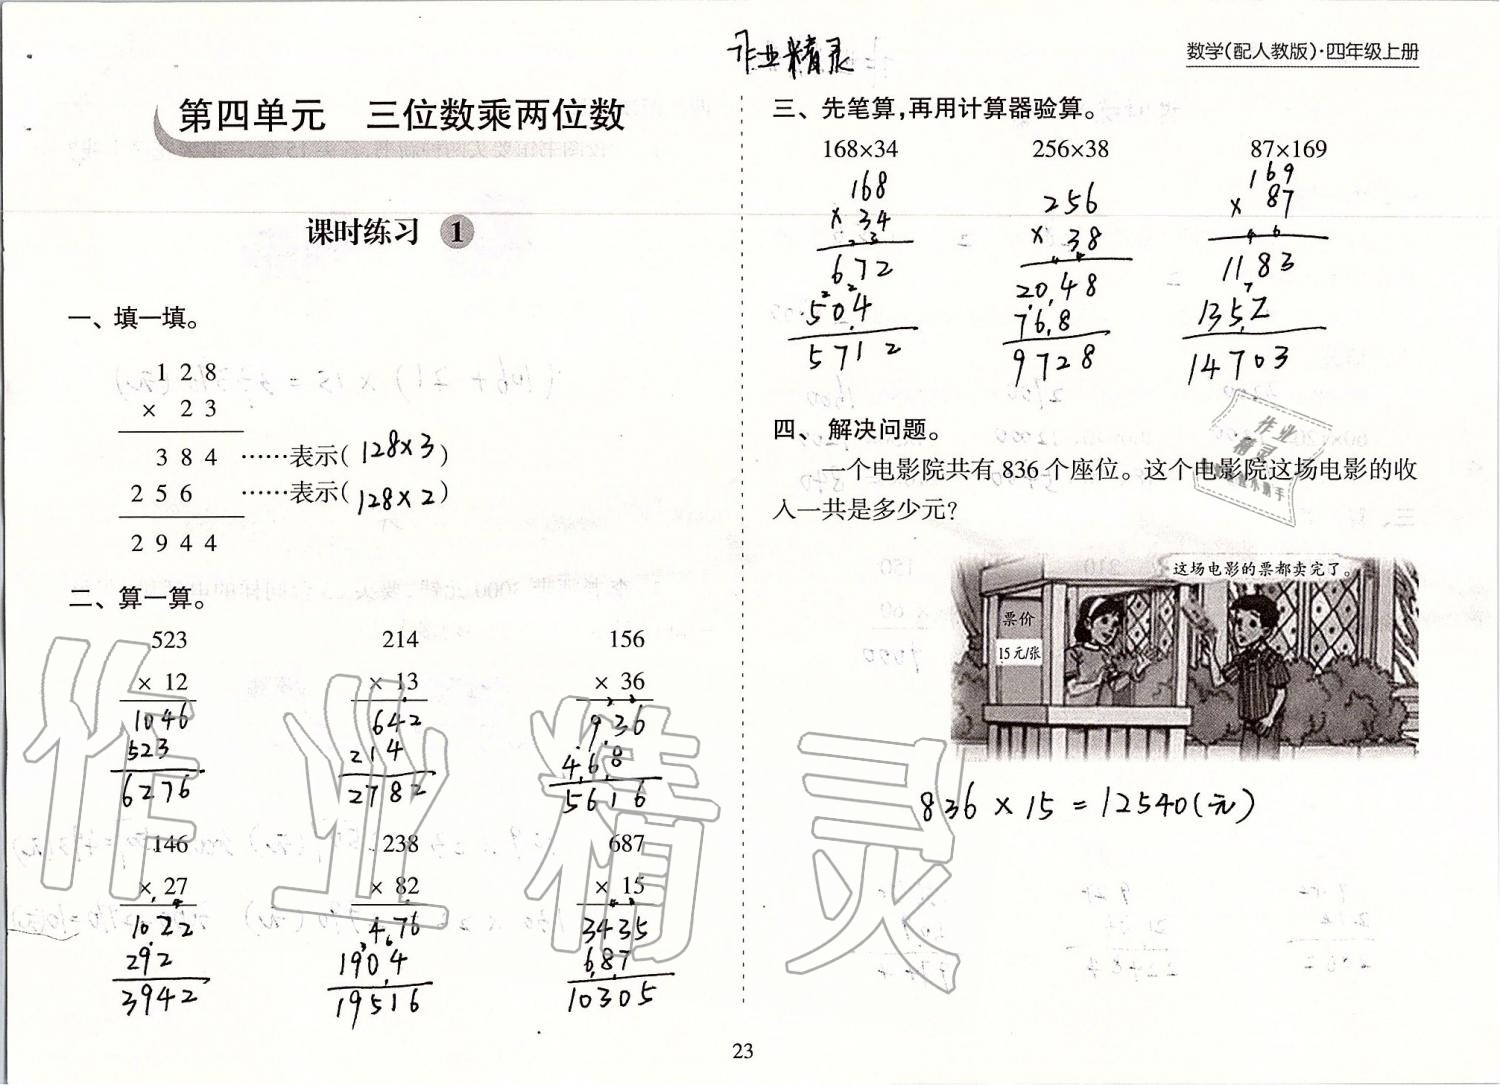 作业精灵
数学(配人教版)·四年级上册
第四单元 三位数乘两位数
课时练习 1
一、填一填。
1 2 8
× 2 3
3 8 4 ……表示(128×3)
2 5 6 ……表示(128×2)
2 9 4 4
二、算一算。
523 214 156
× 12 × 13 × 36
1046 642 936
523 214 468
6276 2782 5616
146 238 687
× 27 × 82 × 15
1022 476 3435
292 1904 687
3942 19516 10305
三、先笔算,再用计算器验算。
168×34 256×38 87×169
168 256 169
× 34 × 38 × 87
672 2048 1183
504 768 1352
5712 9728 14703
四、解决问题。
一个电影院共有 836 个座位。这个电影院这场电影的收
入一共是多少元?
这场电影的票都卖完了。
票价
15 元/张
836 × 15 = 12540(元)
作业
精灵
作业精灵
23